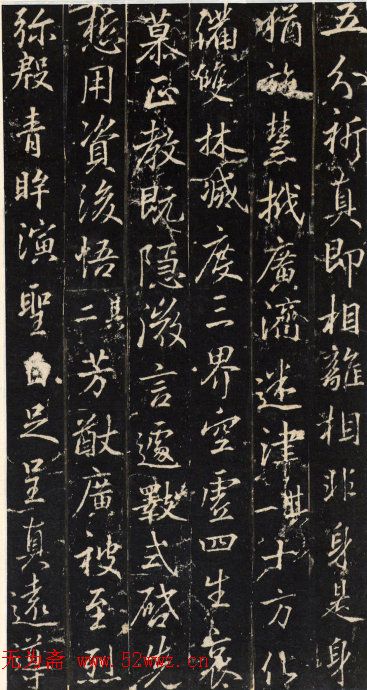 五分祈真即相離相非身是身
猶施慧檝廣濟迷津其一十方化
備雙林滅度三界空虛四生哀
慕正教既隱微言遽斁式啓先
用資後悟其二芳猷廣被至烈
弥殷青眸演聖白足呈真遠
无为斋 www.52wwz.cn